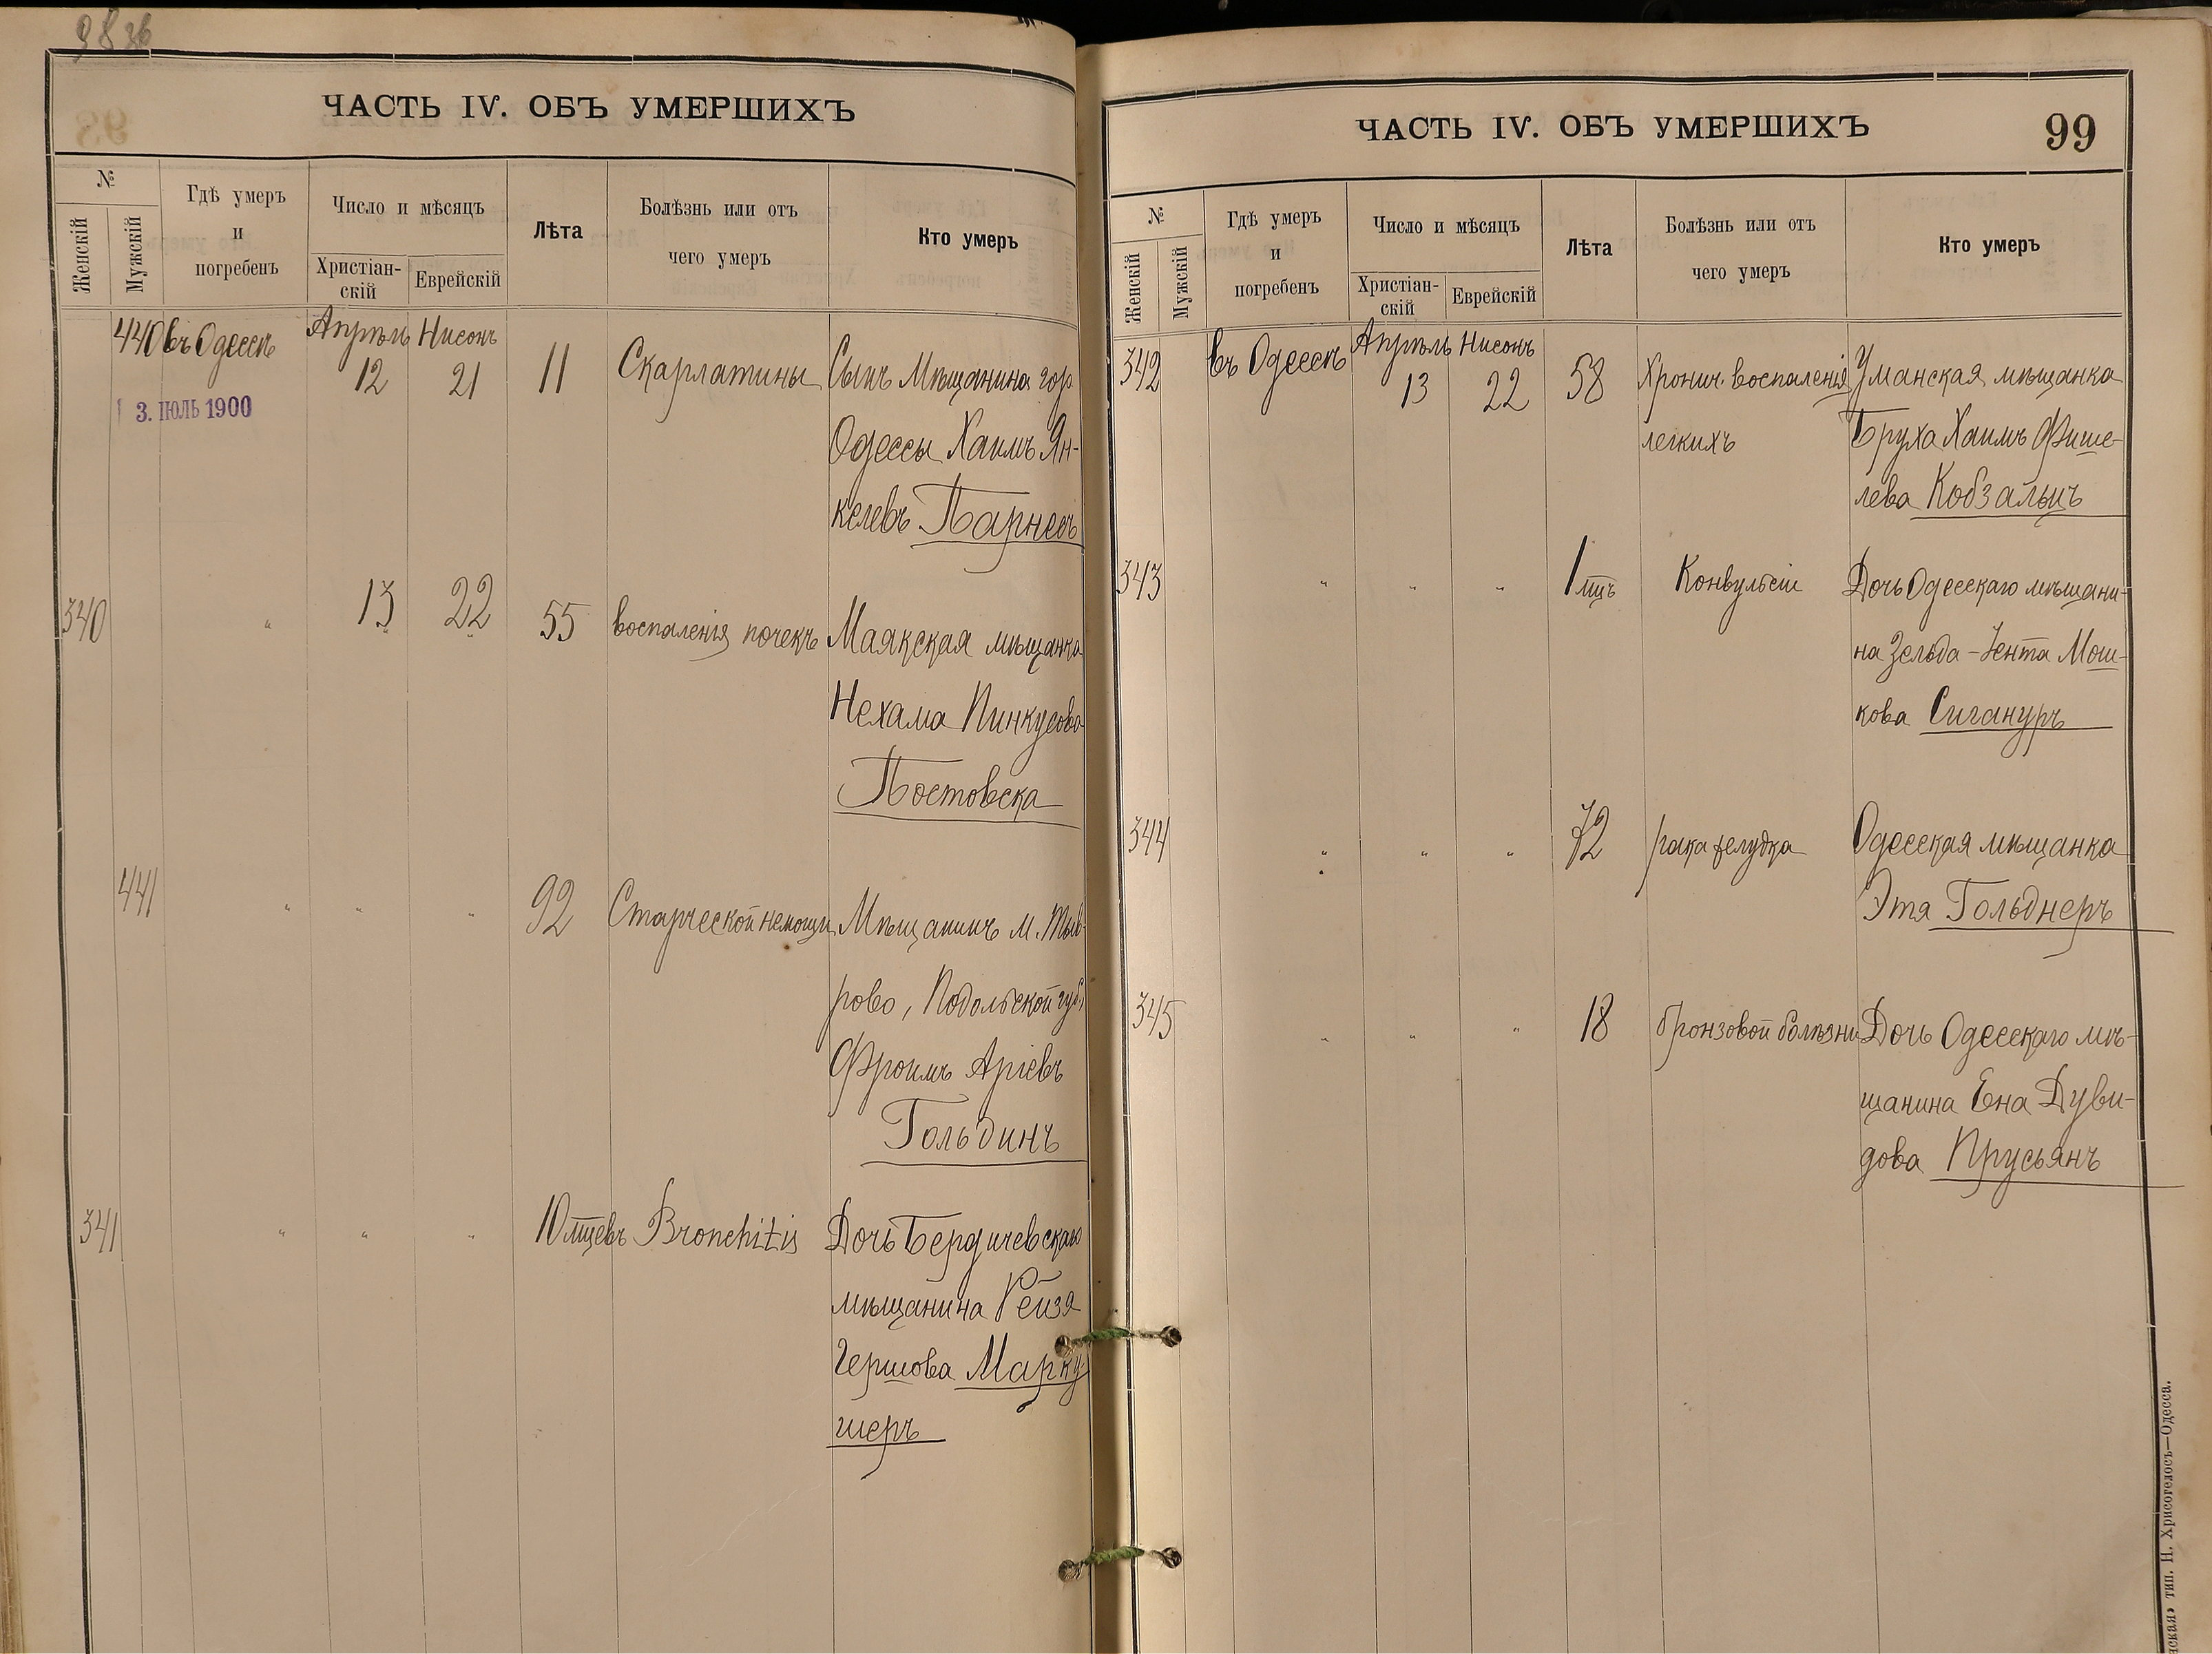 98 об
ЧАСТЬ IV. ОБЪ УМЕРШИХЪ
№
Женскій
Мужскій
Гдѣ умеръ
и
погребенъ
Число и мѣсяцъ
Христіан-
скій
Еврейскій
Лѣта
Болѣзнь или отъ
чего умеръ
Кто умеръ
440 въ Одессѣ Апрѣль 12 Нисонъ 21 11 Скарлатины Сынъ Мѣщанина гор.
Одессы Хаимъ Ян-
келевъ Парнесъ
3. ІЮЛЬ 1900
340 " 13 22 55 воспаленія почекъ Маякская мѣщанка
Нехама Пинкусова
Постовска
441 " " " 92 Старческой немощи Мѣщанинъ м. Тыв-
рово, Подольской губ.
Фроимъ Аріевъ
Гольдинъ
341 " " " 10 мцевъ Bronchitis Дочь Бердичевскаго
мѣщанина Рейзя
Гершова Марку-
шеръ
ЧАСТЬ IV. ОБЪ УМЕРШИХЪ
99
№
Женскій
Мужскій
Гдѣ умеръ
и
погребенъ
Число и мѣсяцъ
Христіан-
скій
Еврейскій
Лѣта
Болѣзнь или отъ
чего умеръ
Кто умеръ
342 въ Одессѣ Апрѣль 13 Нисонъ 22 58 Хронич. воспаленія Уманская мѣщанка
легкихъ Бруха Хаимъ Фише-
лева Кобзальцъ
343 " " " 1 мцъ Конвульсіи Дочь Одесскаго мѣщани-
на Зельда-Іента Мош-
кова Сигануръ
344 " " " 72 рака желудка Одесская мѣщанка
Этя Гольднеръ
345 " " " 18 бронзовой болѣзни Дочь Одесскаго мѣ-
щанина Ена Дуви-
дова Прусьянъ
тип. Н. Хрисогелосъ—Одесса.